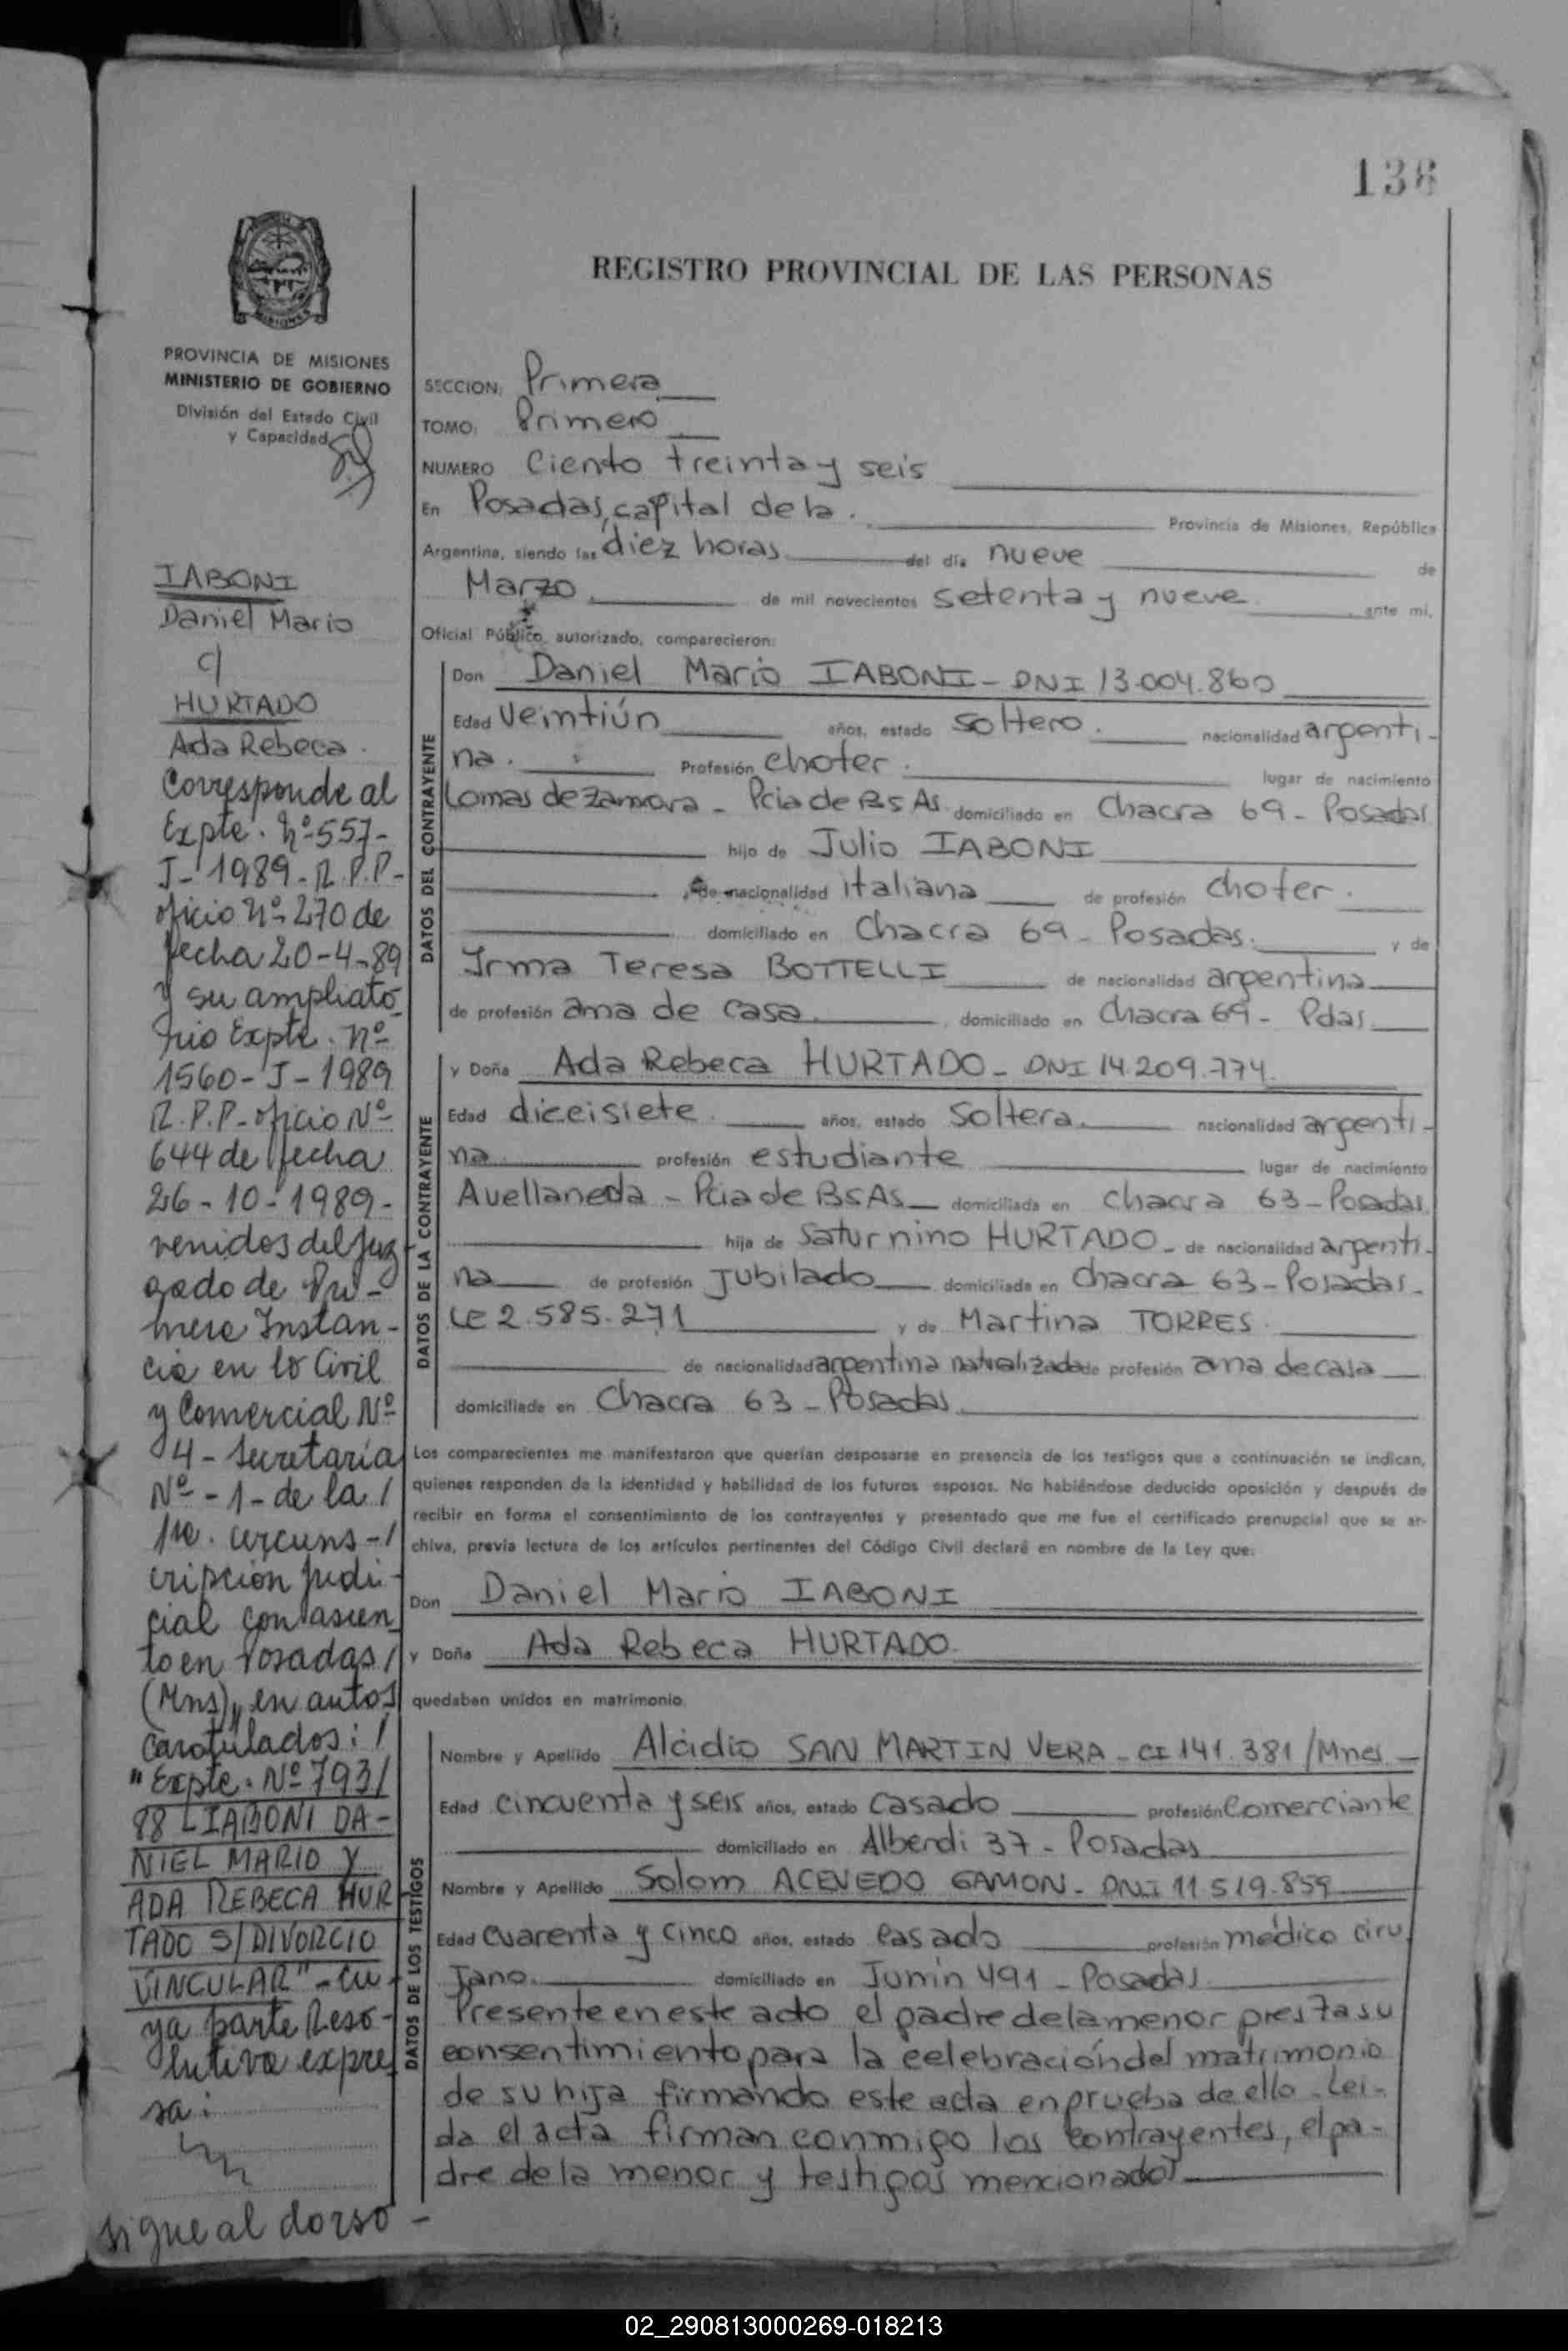 136
REGISTRO PROVINCIAL DE LAS PERSONAS
PROVINCIA DE MISIONES
MINISTERIO DE GOBIERNO
División del Estado Civil
y Capacidad
IABONI
Daniel Mario
c/
HURTADO
Ada Rebeca.
Corresponde al
Expte. Nº 557-
J-1989-R.P.P-
oficio Nº 270 de
fecha 20-4-89
y su ampliato
rio Expte. Nº
1560-J-1989
R.P.P-oficio Nº
644 de fecha
26-10-1989-
venidos del Juz
gado de Pri-
mera Instan-
cia en lo Civil
y Comercial Nº
4-Secretaría
Nº-1-de la /
1ra. circuns-/
cripción Judi-
cial con asien
to en Posadas /
(Mns), en autos
caratulados: /
"Expte. Nº 793/
88 - IABONI DA-
NIEL MARIO Y
ADA REBECA HUR
TADO S/DIVORCIO
VINCULAR"-cu-
ya parte Reso-
lutiva expre
sa:
sigue al dorso -
SECCION: Primera
TOMO: Primero
NUMERO Ciento treinta y seis
En Posadas, capital de la. Provincia de Misiones, República
Argentina, siendo las diez horas del día nueve de
Marzo de mil novecientos setenta y nueve ante mi,
Oficial Público autorizado, comparecieron:
DATOS DEL CONTRAYENTE
Don Daniel Mario IABONI - DNI 13.004.860
Edad Veintiún años, estado soltero. nacionalidad argenti-
na. Profesión chofer. lugar de nacimiento
Lomas de Zamora - Pcia de Bs As. domiciliado en Chacra 69 - Posadas
hijo de Julio IABONI
de nacionalidad italiana de profesión chofer.
domiciliado en Chacra 69 - Posadas. y de
Irma Teresa BOTTELLI de nacionalidad argentina
de profesión ama de casa. domiciliado en Chacra 69 - Pdas.
DATOS DE LA CONTRAYENTE
y Doña Ada Rebeca HURTADO - DNI 14.209.774.
Edad dieceisiete. años, estado Soltera. nacionalidad argenti-
na profesión estudiante lugar de nacimiento
Avellaneda - Pcia de BsAs domiciliada en chacra 63 - Posadas.
hija de Saturnino HURTADO - de nacionalidad argenti-
na de profesión Jubilado domiciliado en Chacra 63 - Posadas -
LE 2.585.271 y de Martina TORRES.
de nacionalidad argentina naturalizada de profesión ama de casa
domiciliada en Chacra 63 - Posadas.
Los comparecientes me manifestaron que querían desposarse en presencia de los testigos que a continuación se indican,
quienes responden de la identidad y habilidad de los futuros esposos. No habiéndose deducido oposición y después de
recibir en forma el consentimiento de los contrayentes y presentado que me fue el certificado prenupcial que se ar-
chiva, previa lectura de los artículos pertinentes del Código Civil declaré en nombre de la Ley que:
Don Daniel Mario IABONI
y Doña Ada Rebeca HURTADO.
quedaban unidos en matrimonio.
DATOS DE LOS TESTIGOS
Nombre y Apellido Alcidio SAN MARTIN VERA - CI 141.381/Mnes.
Edad cincuenta y seis años, estado casado profesión Comerciante
domiciliado en Alberdi 37 - Posadas
Nombre y Apellido Solom ACEVEDO GAMON - DNI 11.519.859
Edad cuarenta y cinco años, estado casado profesión médico ciru
jano. domiciliado en Junin 491 - Posadas
Presente en este acto el padre de la menor presta su
consentimiento para la celebración del matrimonio
de su hija firmando este acta en prueba de ello. Lei-
da el acta firman conmigo los contrayentes, el pa-
dre de la menor y testigos mencionados
02_290813000269-018213